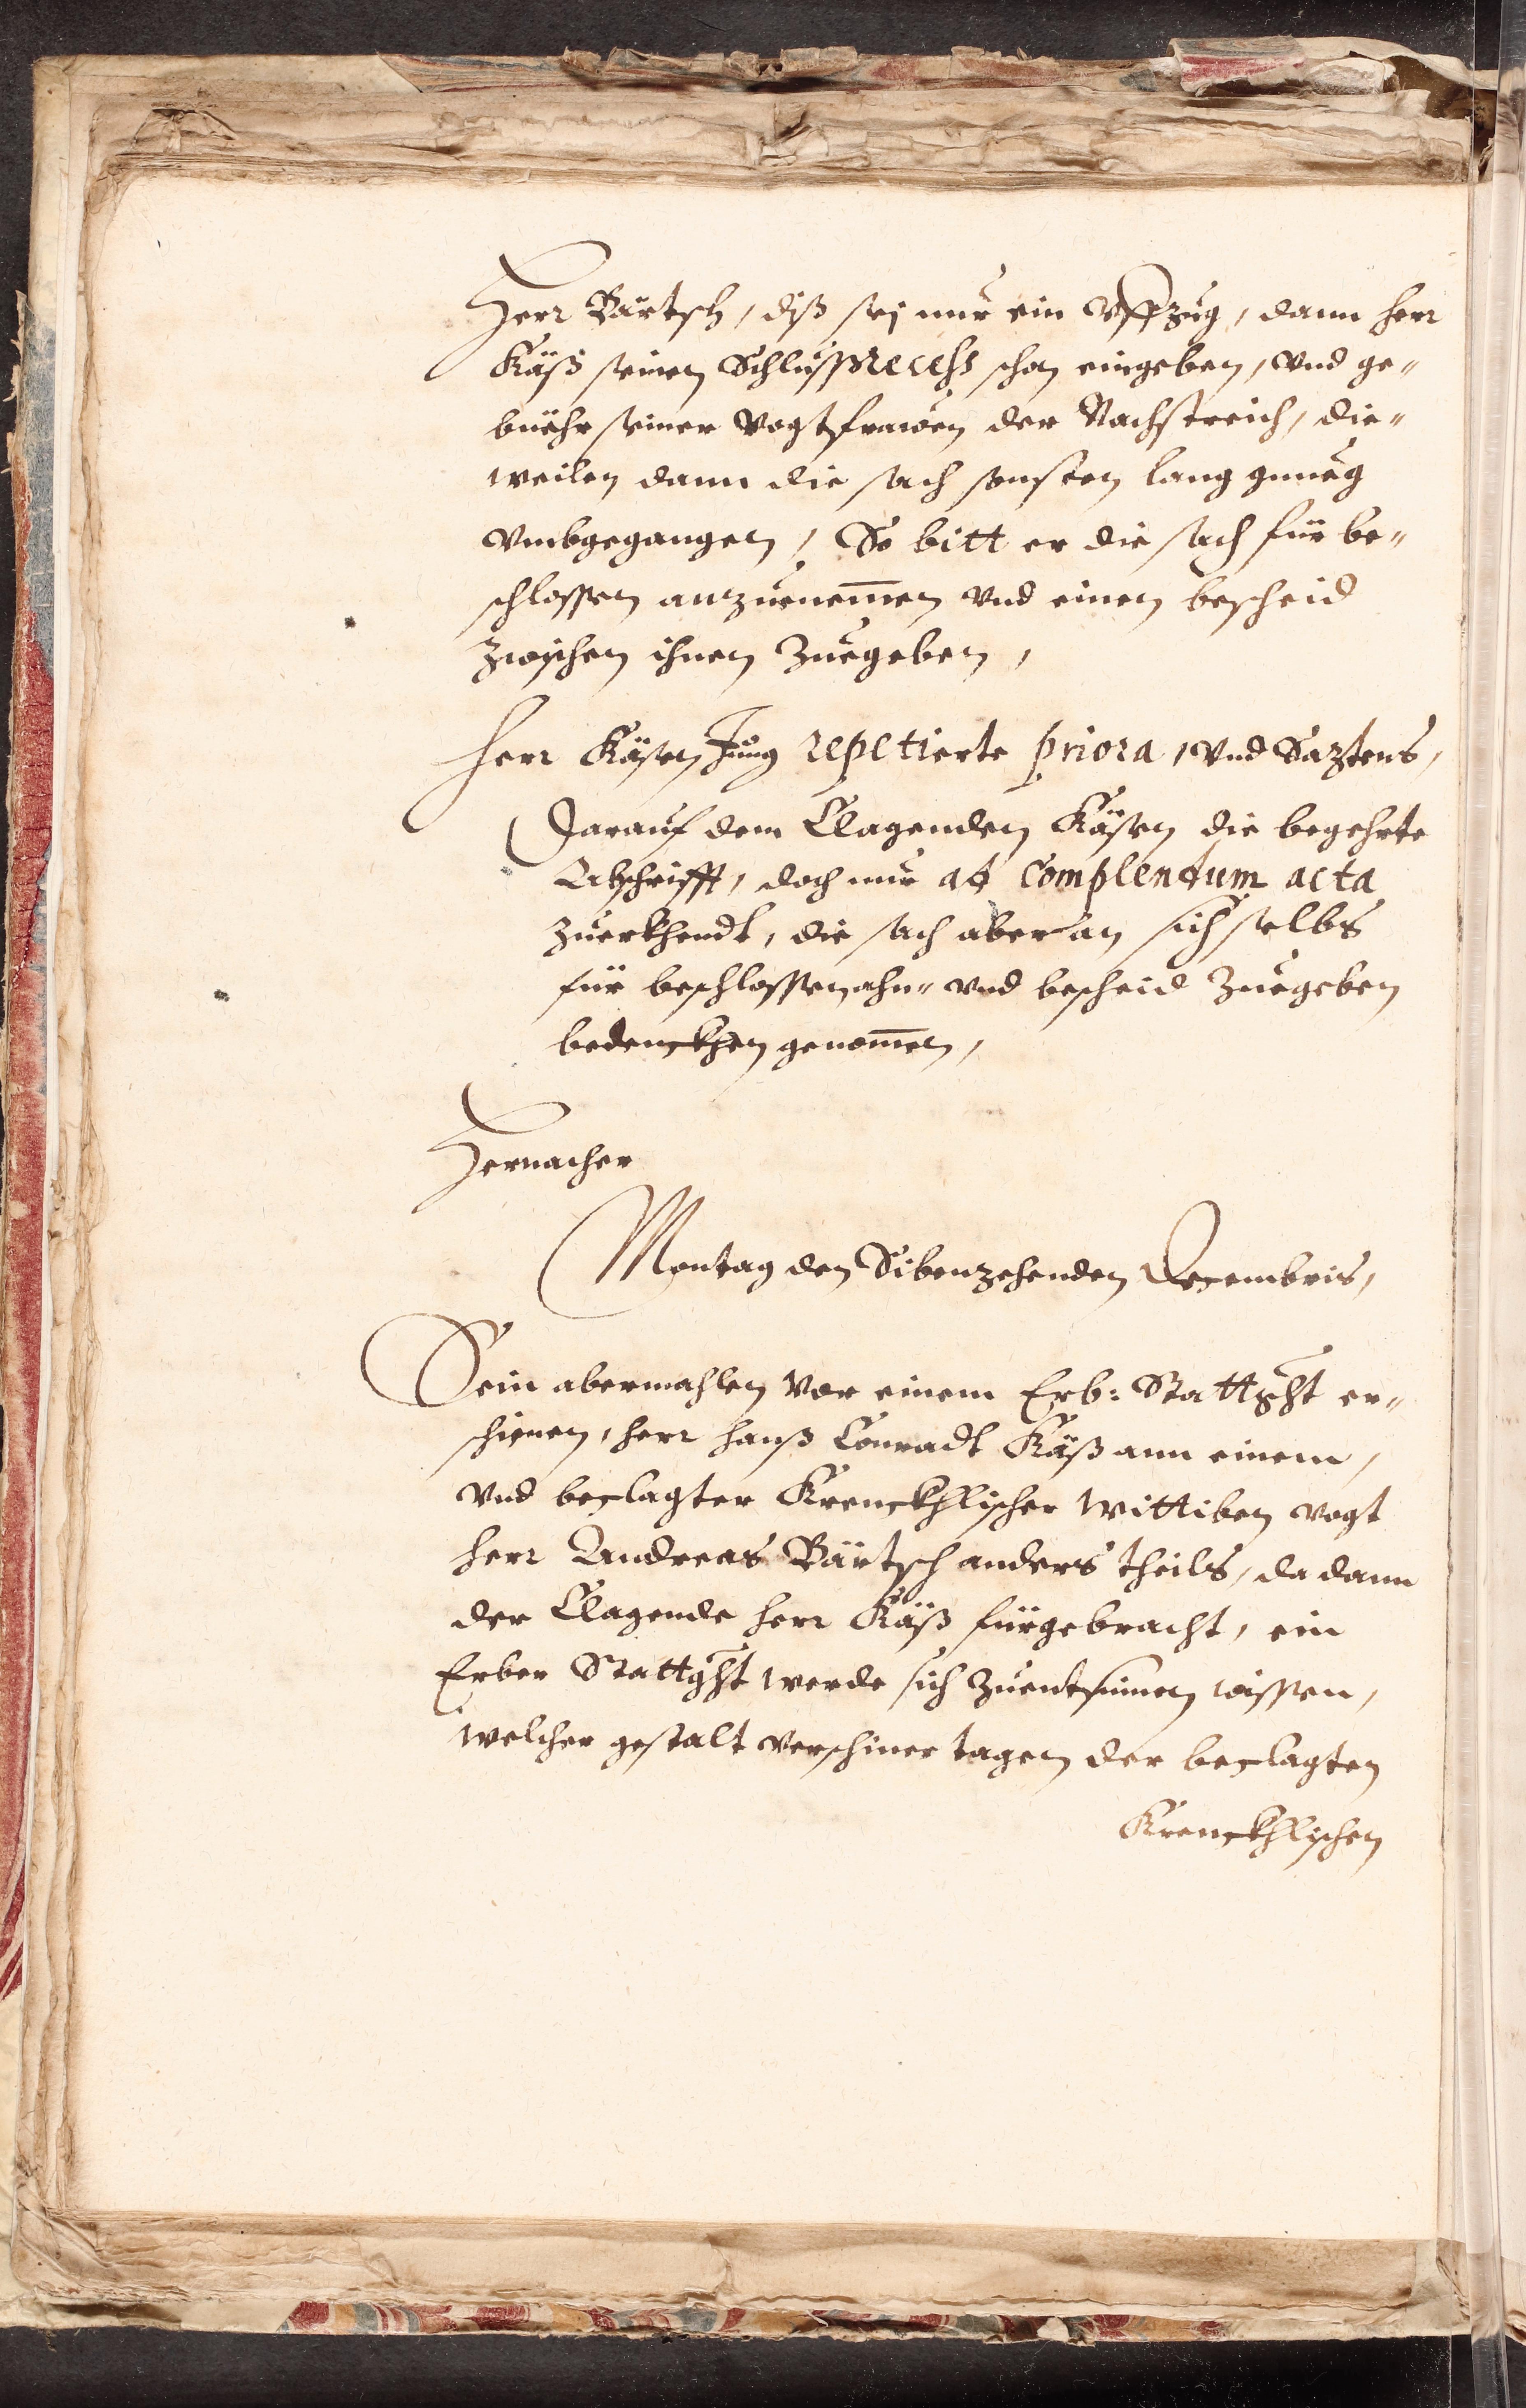 Herr Bärtsch, diß sej nur ein Vffzug, dann herr
Käß seinen Schlussrecess schon eingeben, vnd ge¬
buehr seiner Vogtfrawen der Nachstreich, die¬
weilen dann die sach sonsten lang gnueg
vmbgegangen, So bitt er die sach für be¬
schlossen anzuenem̄en vnd einen bescheid
zwischen ihnen zuegeben,
Herr Käsen Jung repetierte priora, vnd Saztens,
Darauf dem Clagenden Käsen die begehrte
Abschrifft, doch nur ad complendum acta
zuerkhendt, die sach aber an sich selbs
für beschlossen ahn- vnd bescheid zuegeben
bedenckhen genom̄en,
Hernacher
Montag den Sibenzehenden Decembris,
Sein abermahlen vor einem Erb: Stattght er¬
schienen, herr hanß Conradt Käß ann einem,
vnd beclagter Krenckhlischer wittiben vogt
herr Andreas Bärtsch anders theils, da dann
der Clagende herr Käß fürgebracht, ein
Erber Stattght werde sich zuentsinnen wissen,
welcher gestalt verschiner tagen der beclagten
Krenckhlischen